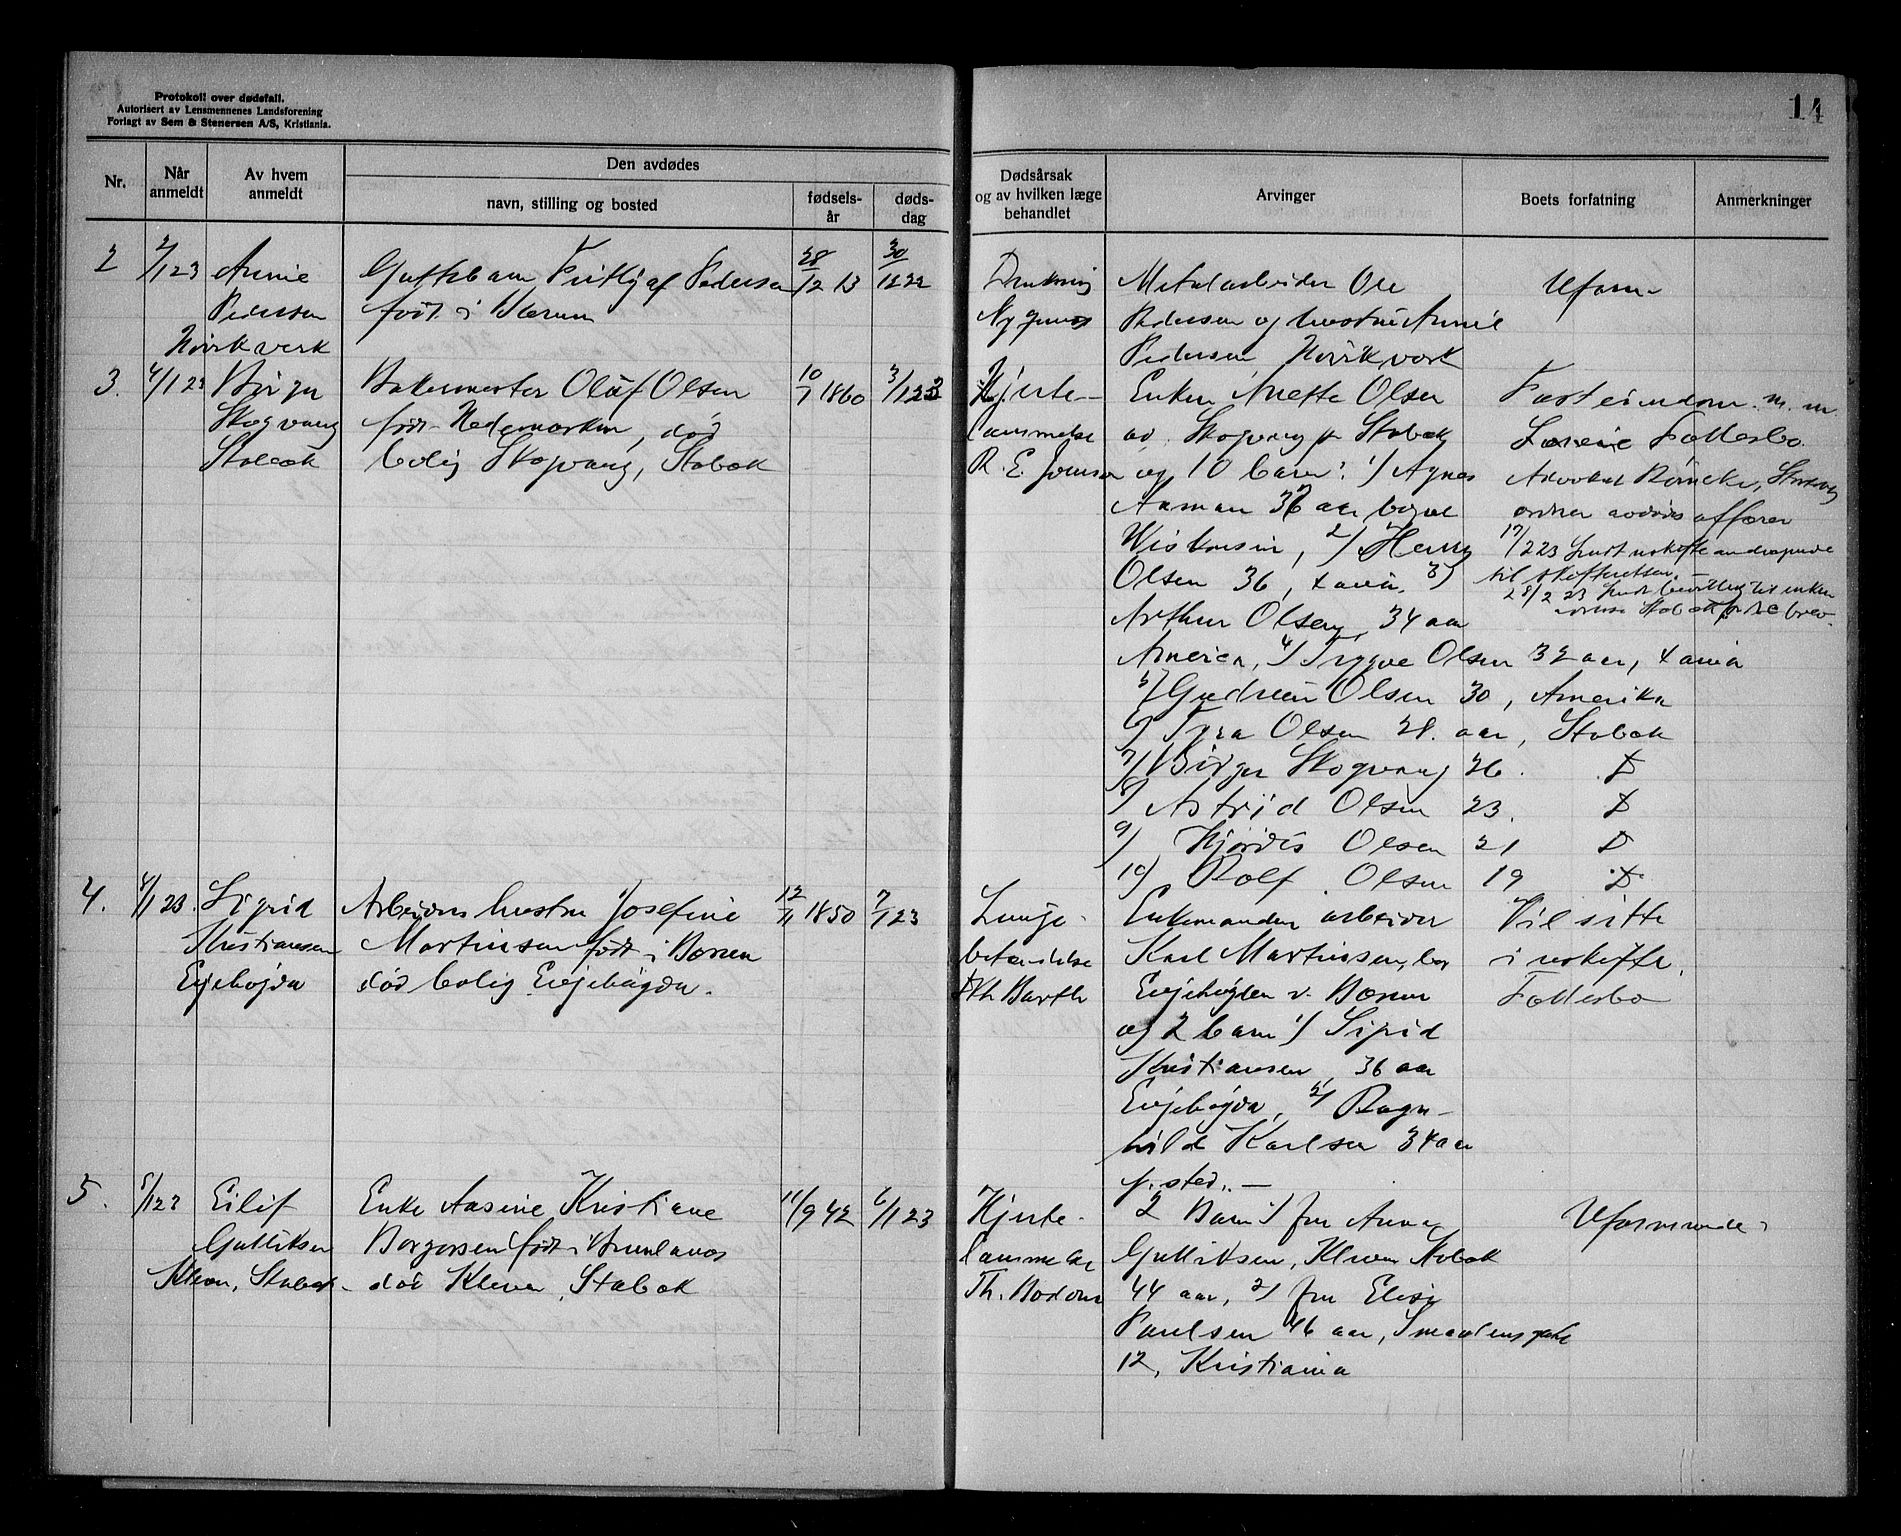 Protokoll over dødsfall.
Autorisert av Lensmennenes Landsforening
Forlagt av Sem & Stenersen A/S, Kristiania.
14
Nr.
Når anmeldt
Av hvem anmeldt
Den avdødes
navn, stilling og bosted
fødsels-år
døds-dag
Dødsårsak og av hvilken læge behandlet
Arvinger
Boets forfatning
Anmerkninger
2
2/1 23
Annie
Pedersen
Høvik verk
Guttebarn Fritjaf Pedersen
født i Bærum
28/12 13
30/12 22
Drukning
Metalarbeider Ole
Pedersen og hustru Annie
Pedersen Høvik verk
Uform-
3.
4/1 23
Birger
Skogvang
Stabæk
Bakermester Olaf Olsen
født Hedemarken, død
bolig Skogvang, Stabæk
10/7 1860
3/1 23
Hjerte-
lammelse
R. E. Jonsson
Enken Anette Olsen
ad. Skogvang pr Stabæk
og 10 barn: 1) Agnes
Aaman 36 aar
Wiskonsin, 2) Henry
Olsen 36, Xania, 3)
Arthur Olsen, 34 aar
America, 4) Trygve Olsen 32 aar, Xania
5) Gudrun Olsen 30, Amerika
6) Tyra Olsen 28. aar, Stabæk
7) Birger Skogvang 26. D
8) Astrid Olsen 23. D
9) Hjørdis Olsen 21 D
10) Rolf Olsen 19 D
Fast eiendom m. m.
Føllesbo.
Advokat
ordner avdødes affærer
17/2 23 Sendt uskifte andragende
til skifteretten.-
28/2 23 Sendt bevilling til enken
4.
4/1 23.
Sigrid
Kristiansen
Eijebøjda
Arbeiders hustru Josefine
Martinsen født i Bærum
død bolig Eijebøgda.
12/11 1850
7/1 23
Lunge-
betændelse
Th Barth
Enkemanden arbeider
Karl Martinsen, bor
Eijebøgden v. Bærum
og 2 barn 1) Sigrid
Kristiansen, 36 aar
Eijebøgda, 2) Ragn-
hild Karlsen 34 aar
s. sted.-
Vil sitte
i uskifte.
Føllesbo
5.
5/1 23
Eilif
Gulliksen
Kleven, Stabæk-
Enke Aasine Kristiane
Borgersen født i Brunlanes
død Kleven, Stabæk
11/9 42
6/1 23
Hjerte-
lammelse
Th.
2 Barn 1) fru Anna
Gulliksen, Kleven Stabæk
44 aar, 2) fru Elise
Paulsen 46 aar, Smaalensgate
12, Kristiania
Uformuende-